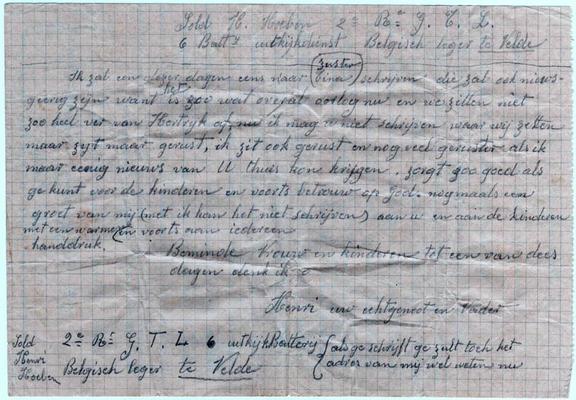 Sold H. Hoeben 2e Re G. T. L.
6 Batty uitkijkdienst Belgisch leger te Velde
Ik zal een dezer dagen eens naar (zuster) Tina schrijven die zal ook nieuws-
gierig zijn want het is zoo wat overal oorlog nu en we zitten niet
zoo heel ver van Kortryk af, nu ik mag u niet schrijven waar wij zetten
maar zyt maar gerust, ik zit ook gerust en nog veel geruster als ik
maar eenig nieuws van U thuis kone krijgen. zorgt zoo goed als
ge kunt voor de kinderen en voorts betrouw op God. nogmaals een
groet van mij (met ik kan het niet schrijven) aan u en aan de kinderen
met een warmen en voorts aan iedereen
handdruk.
Beminde Vrouw en kinderen tot een van dees
dagen denk ik
Henri uw echtgenoot en Vader
Sold Henri Hoeben
2e Re G. T. L 6 uitkijk Battery
Belgisch leger te Velde
als ge schrijft ge zult toch het
adres van mij wel weten nu